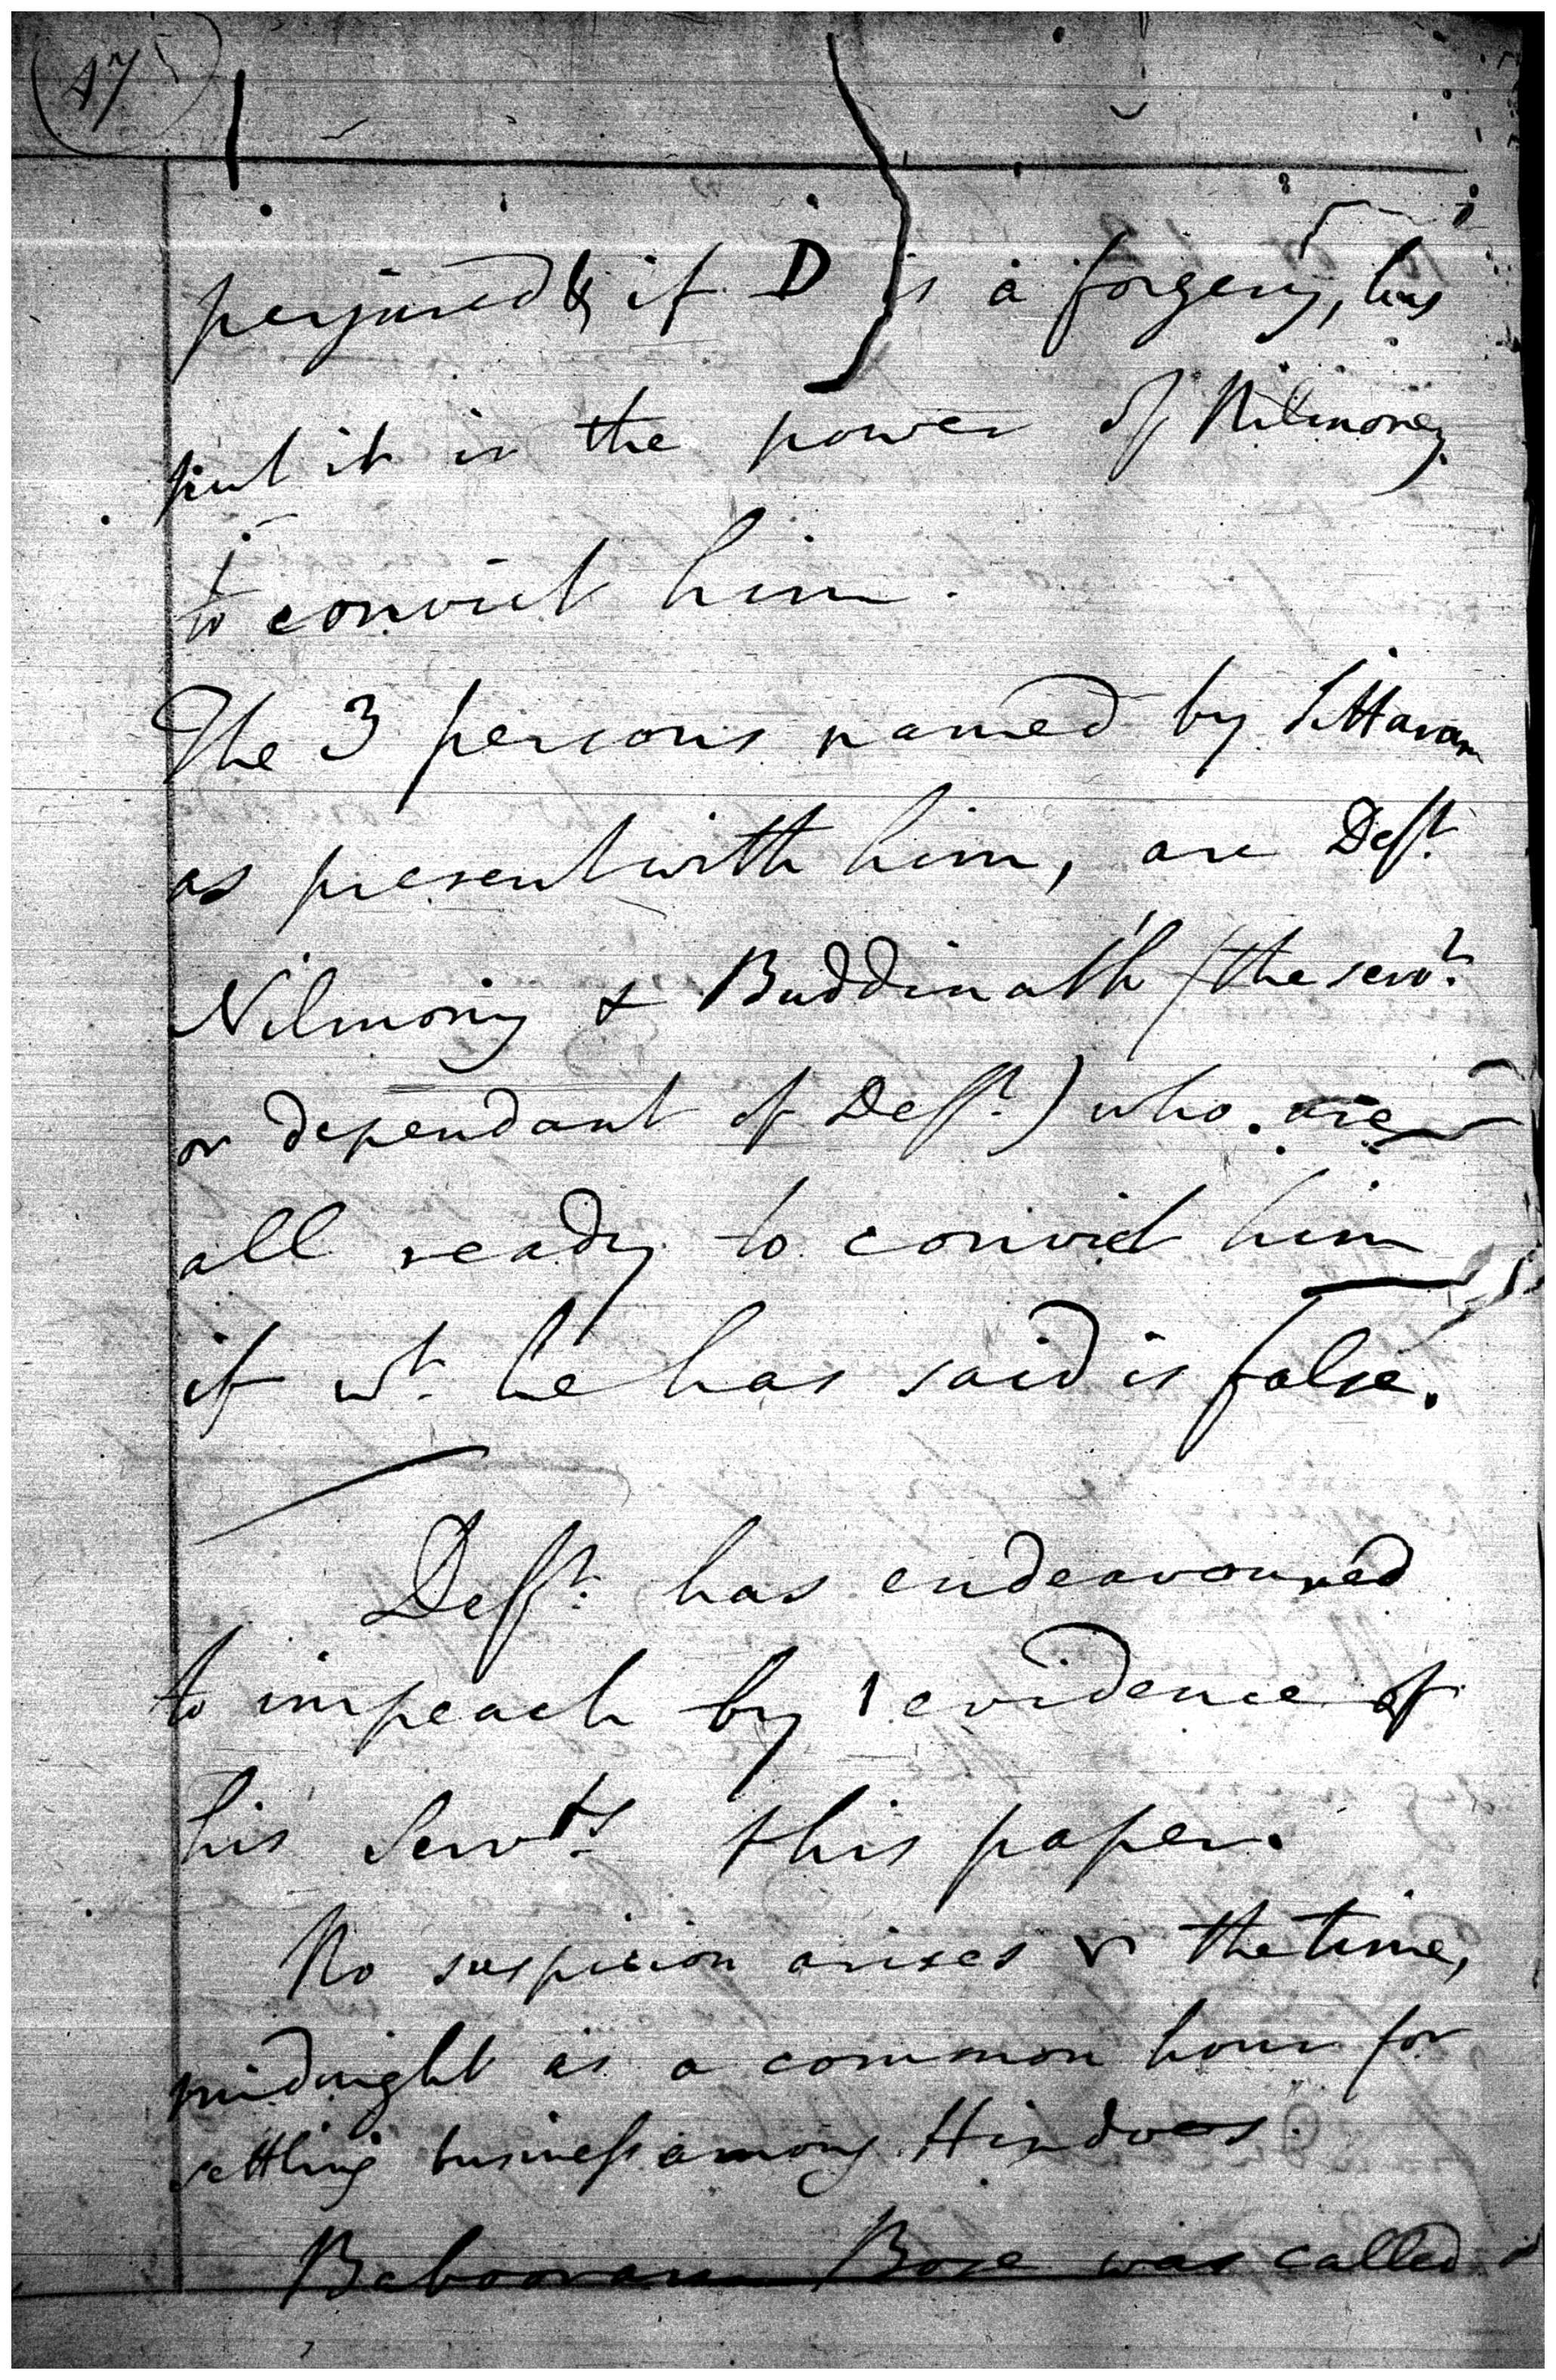 (47)
perjured & if D is a forgery, has
put it in the power of Nilmoney
to convict him.
The 3 persons named by Sittaram
as present with him, are Defft.
Nilmony & Buddinath (the servt.
or dependant of Defft.) who are
all ready to convict him
if wt. he has said is false.
Defft. has endeavoured
to impeach by evidence of
his Servts. this paper.
No suspicion arises the time,
midnight is a common hour for
settling business among Hindoos.
Babooram Bose was called